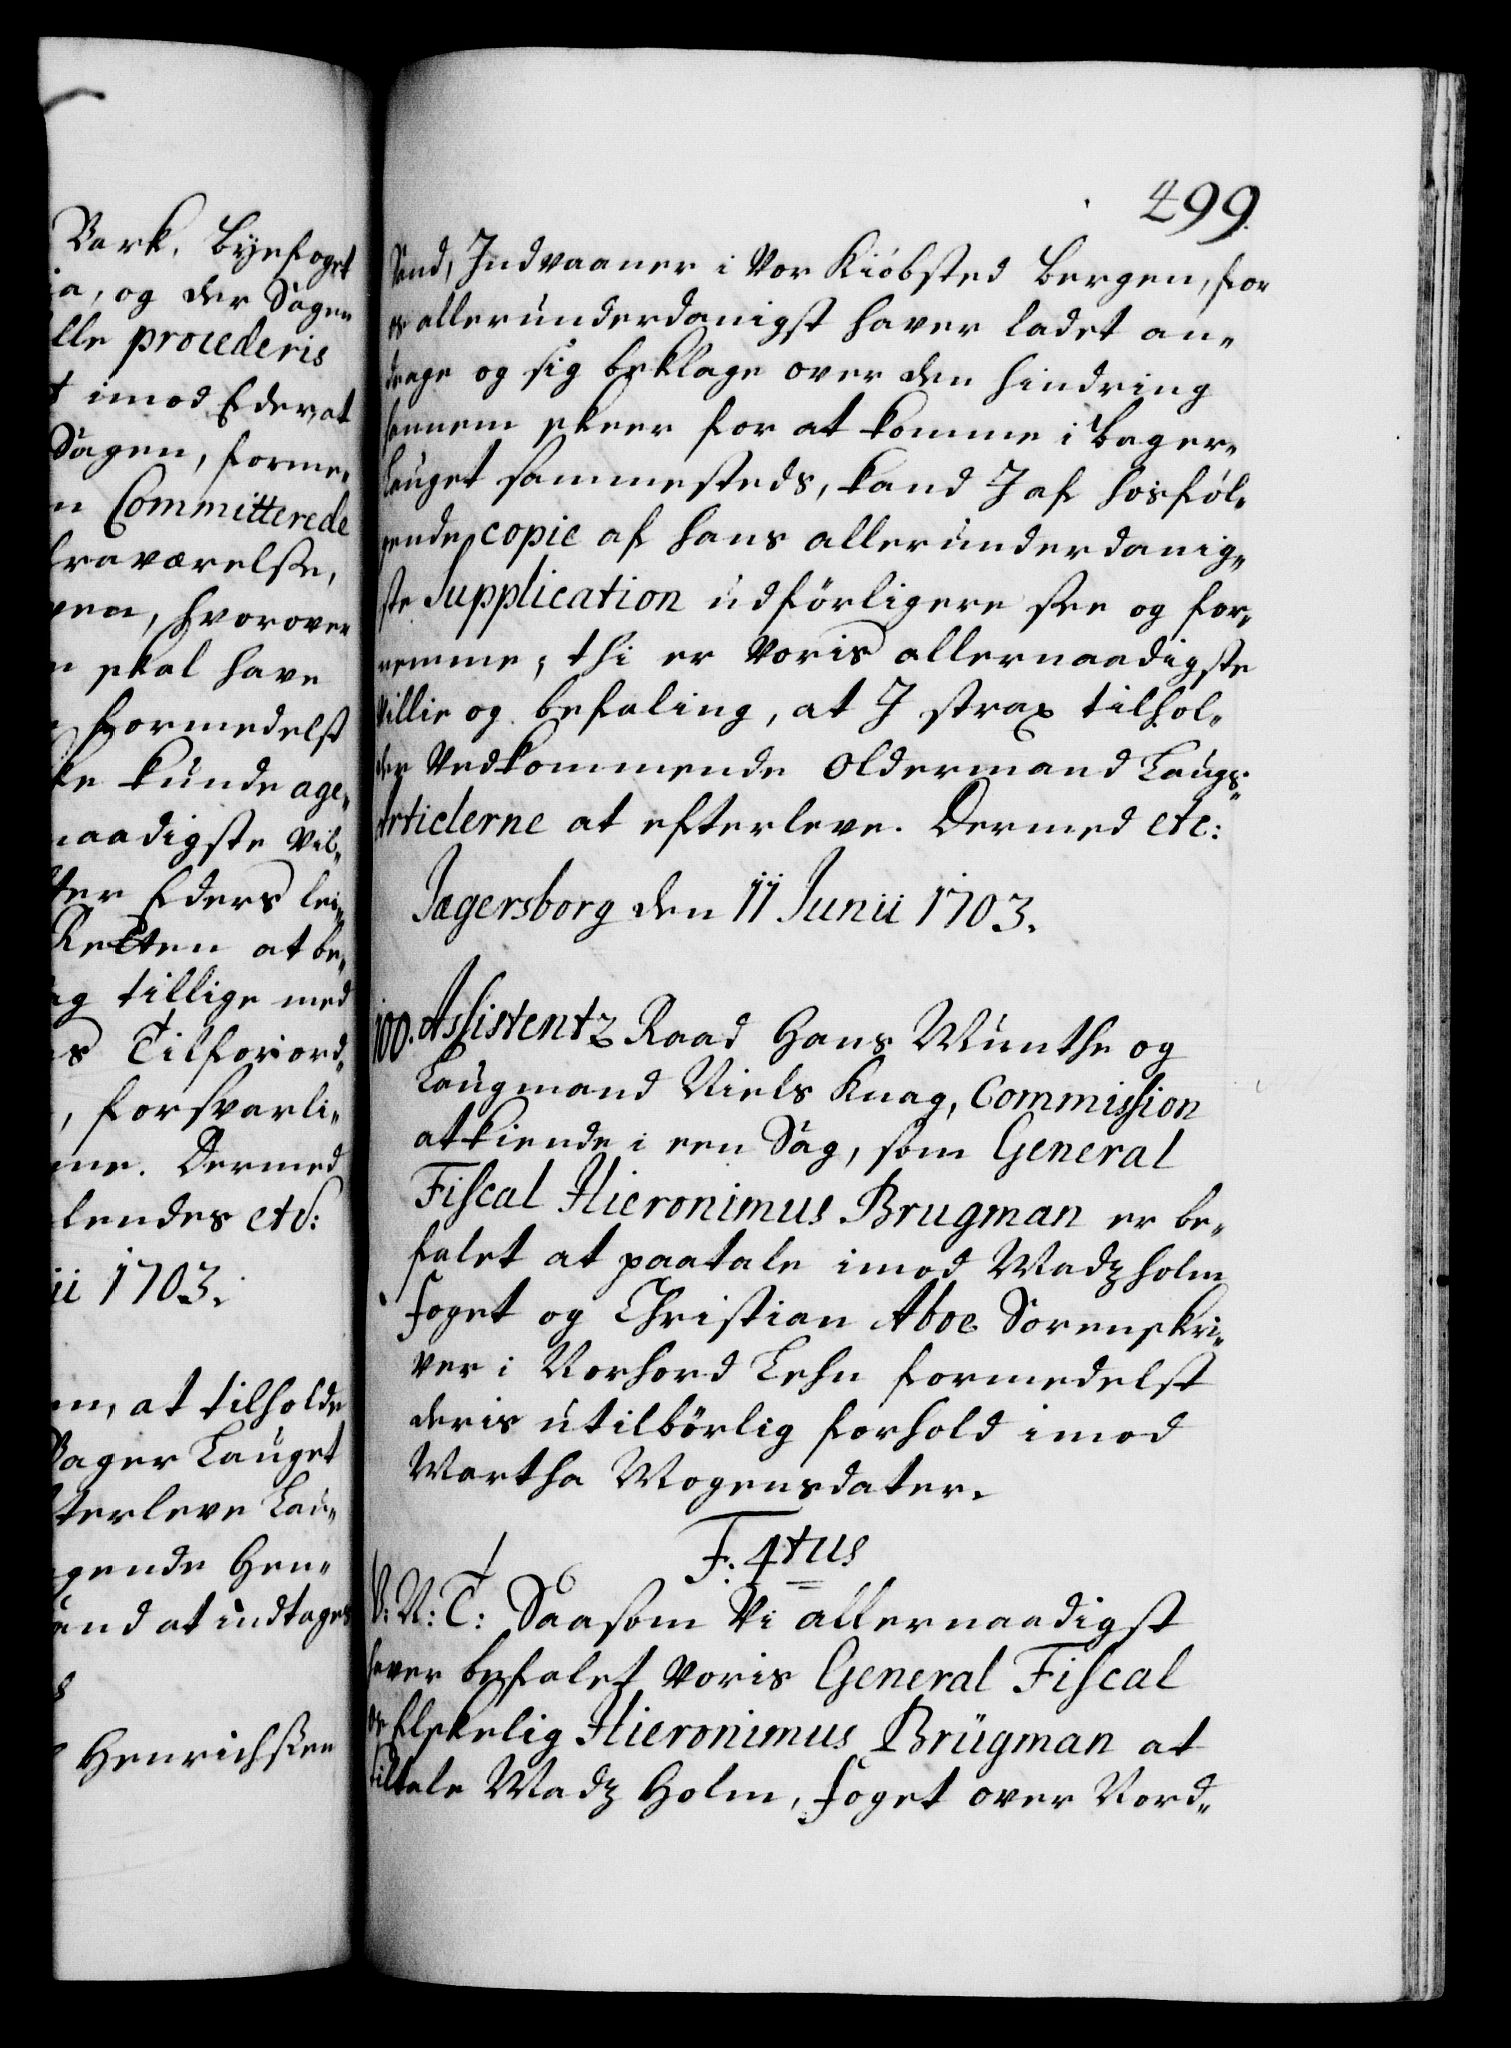 Bark, Byefoget
ia, og der Sagen
lle procederis
t imod Eder, at
Sagen, forme„
n Committerede
fraværelse,
hvorover
n skal have
formedelst
ke kunde age„
naadigste vil„
ter Eders lei„
Retten at be„
ag tillige med
s Tilforord„
, forsvarli„
me. Dermed
lendes etc:
ii 1703.
em, at tilholde
Bager Lauget
fterleve Lau„
gende Hen„
Lund at indtages
Henrichsen
499.
Lund, Indvaaner i Vor Kiöbsted Bergen, for
os allerunderdanigst haver ladet an„
drage og sig beklage over den hindring
hannem skeer for at komme i Bager„
Lauget sammesteds, kand I af hosföl„
gende copie af hans allerunderdanig„
ste Supplication udförligere see og for„
nemme; thi er Voris allernaadigste
Villie og befaling, at I strax tilhol„
der Vedkommende Oldermand Laugs„
Articlerne at efterleve. Dermed etc:
Jægersborg den 11 Junii 1703.
100. Assistentz Raad Hans Munthe og
Laugmand Niels Knag, Commission
at kiende i een Sag, som General
Fiscal Hieronimus Brugman er be„
falet at paatale imod Madz Holm
Foget og Christian Aboe Sorenskri„
ver i Norhord Lehn formedelst
deris utilbörlig forhold imod
Martha Mogensdater.
F. 4tus
V: N: T: Saasom Vi allernaadigst
haver befalet Voris General Fiscal
os Elskelig Hieronimus Brügman at
tiltale Madz Holm, Foget over Nord„